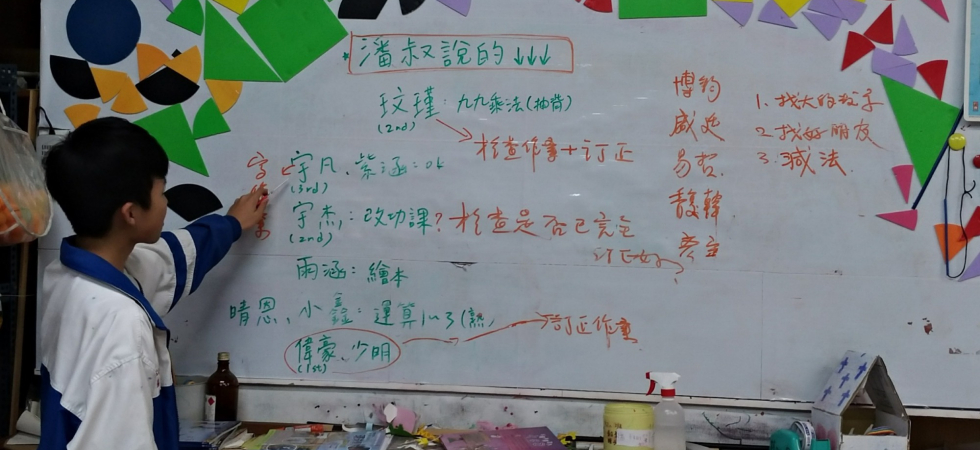 潘叔說的↓↓↓
玟瑾:九九乘法(抽背)
(2nd)
檢查作業+訂正
宇凡、紫涵:ok
(3rd)
宇杰:改功課?檢查是否已完全
(2nd)
訂正好?
雨涵:繪本
晴恩、小鑫:運算1~3(熟)
偉豪、少明 訂正作業
(1st)
博鈞
威廷
易哲
馥韓
1.找大的数字
2.找好朋友
3.減法